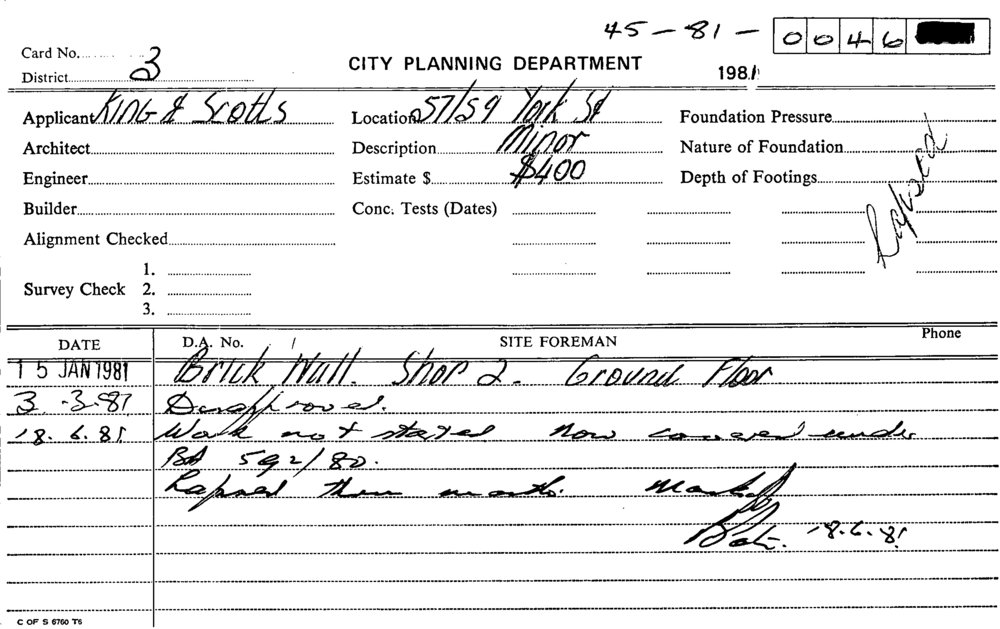 45 - 81 - 0046
Card No. 3
CITY PLANNING DEPARTMENT
District
1981
Applicant KING & Scotts
Location 57/59 York St
Foundation Pressure
Architect
Description Minor
Nature of Foundation
Engineer
Estimate $ $400
Depth of Footings
Lapsed
Builder
Conc. Tests (Dates)
Alignment Checked
1.
Survey Check 2.
3.
DATE
D.A. No.
SITE FOREMAN
Phone
15 JAN 1981 Brick Wall. Shop 2. Ground Floor
3.-3-81 Disapproved.
18.6.81 Work not started now covered under
BA 592/80.
Lapsed three months.
18.6.81
C OF S 6760 T6